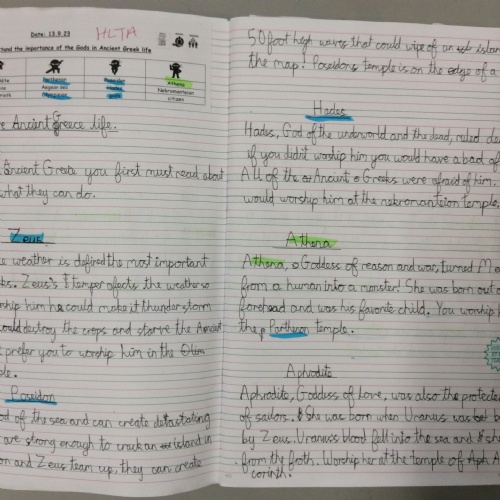 Date: 13.9.23
HLTA
stand the importance of the Gods in Ancient Greek life
Parthenon
Poseidon
Athena
Aegean sea
Hades
Nekromanteion
Olympieion
gods
citizen
Ancient Greece life.
Ancient Greece you first must read about
what they can do.
Zeus
weather is defined the most important
Zeus's temper affects the weather so
ship him he could make it thunder storm
could destroy the crops and starve the Ancient
prefer you to worship him in the
Poseidon
od of the sea and can create detastating
are strong enough to crack an island in
on and Zeus team up, they can create
50 foot high waves that could wipe of an island
the map! Poseidons temple is on the edge of a
Hades
Hades, God of the underworld and the dead, ruled
if you didn't worship him you would have a bad
All of the Ancient Greeks were afraid of him.
would worship him at the nekromanteion temple.
Athena
Athena, Goddess of reason and war, turned
from a human into a monster! She was born out
forehead and was his favorite child. You worship
the Partheon temple.
Aphrodite
Aphrodite, Goddess of love, was also the protecte
of sailors. She was born when Uranus was
by Zeus. Uranus's blood fell into the sea and
from the froth. Worship her at the temple of
corinth.